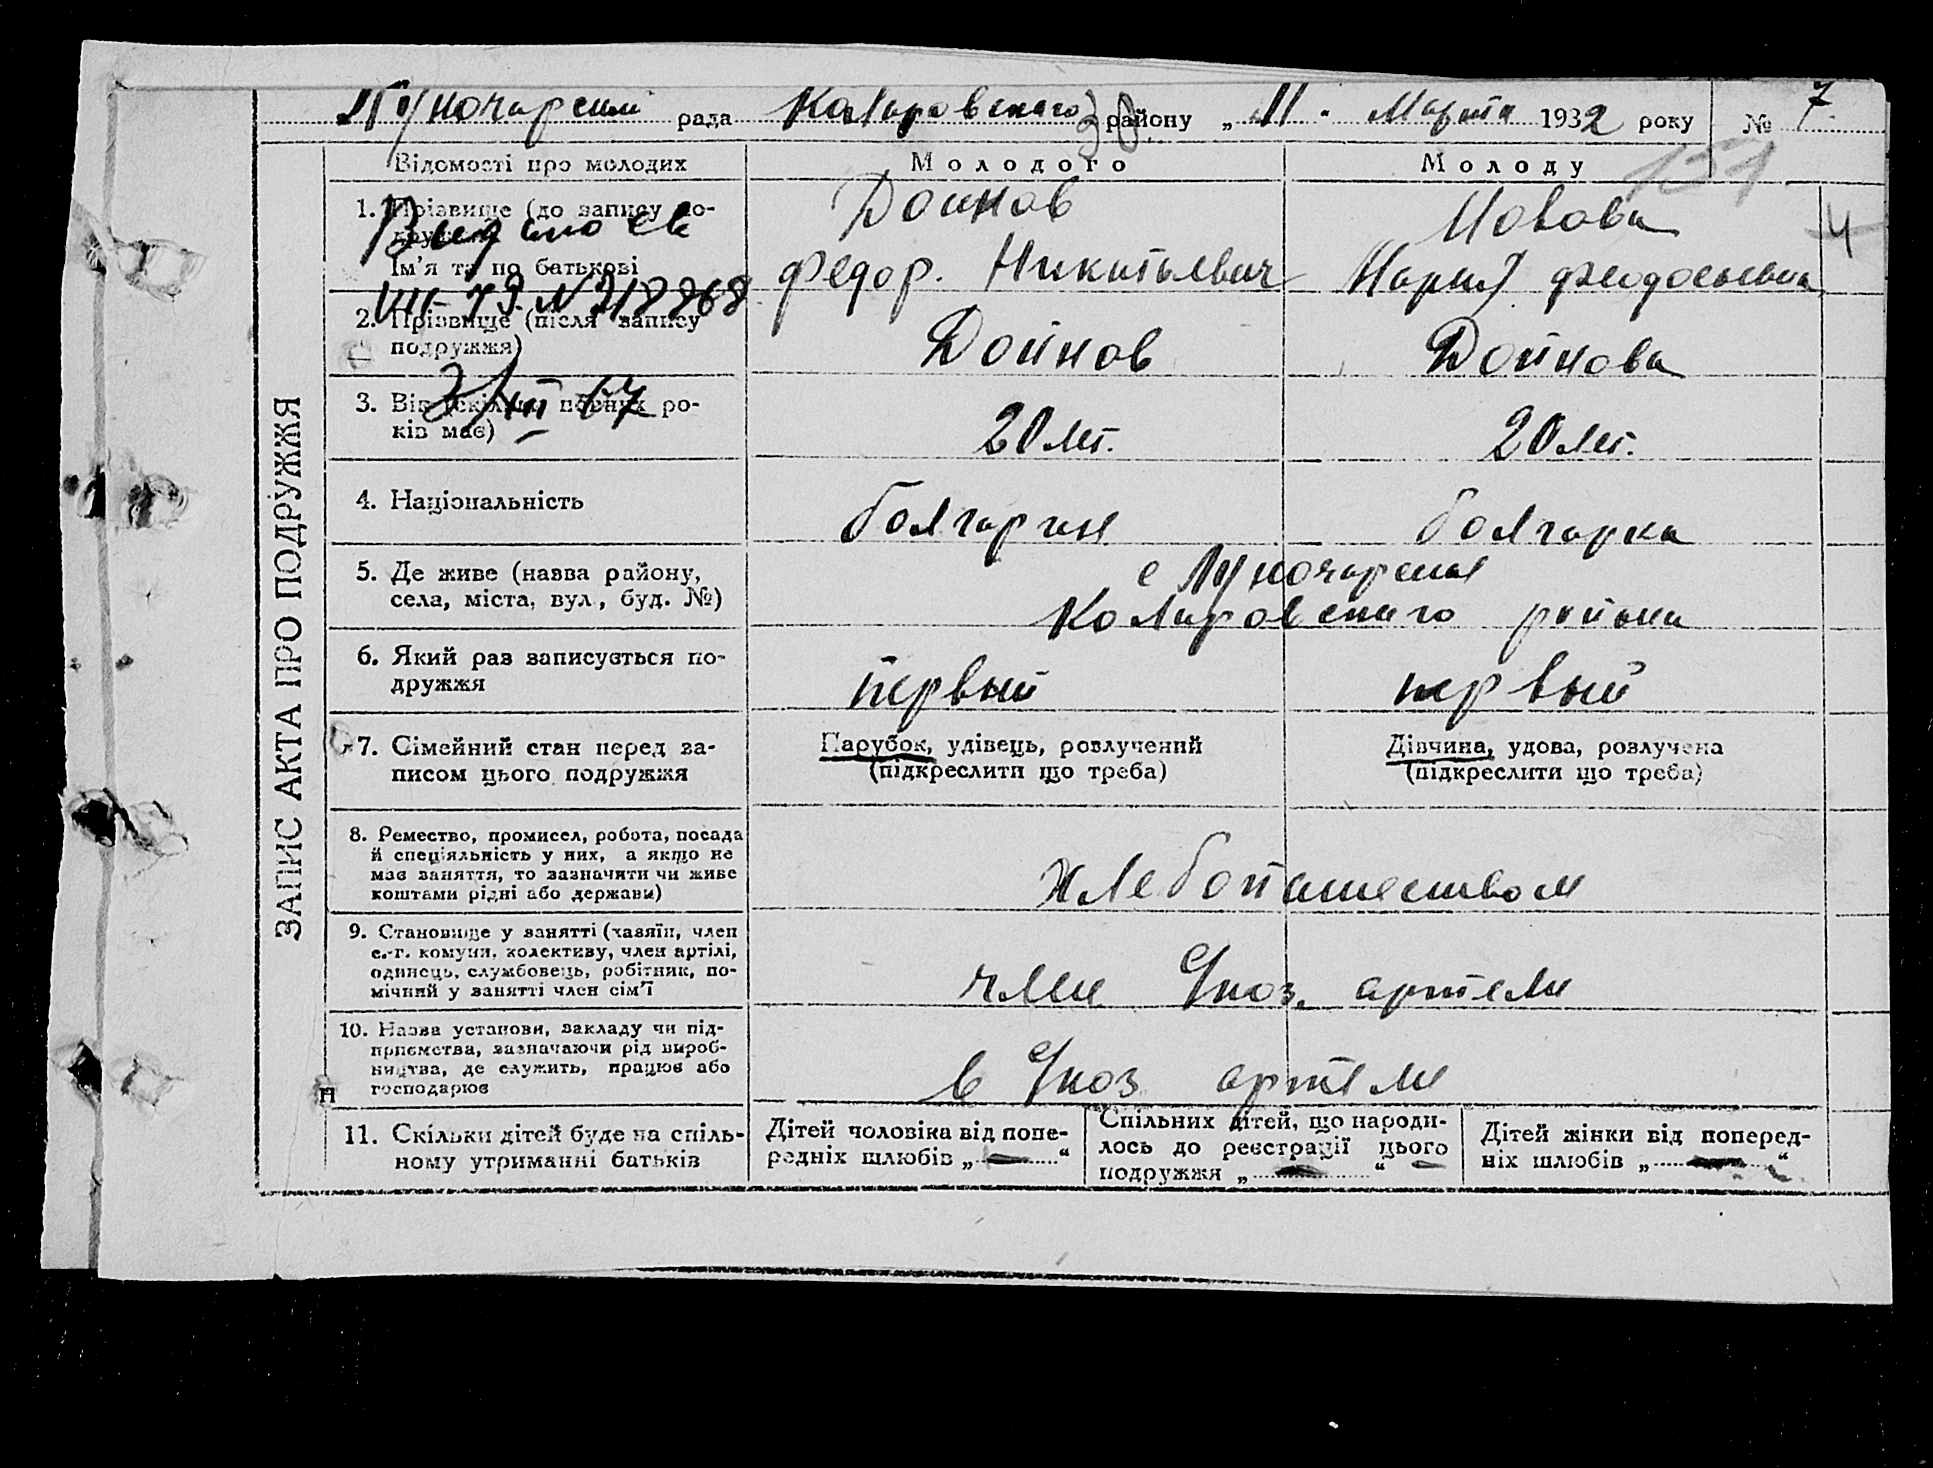 Луночарский рада Коларовскаго району „ 11 “ Марта 1932 року № 7
30
151
ЗАПИС АКТА ПРО ПОДРУЖЖЯ
Відомості про молодих
Молодого
Молоду
1. Прізвище (до запису по-
дружжя)
Ім'я та по батькові
Выдано св
VIII-ЯР № 318868
2/XII 67
Доинов
Федор. Никитьевич
Мария Феодосьевна
4
2. Прізвище (після запису
подружжя)
Дойнов
Дойнова
3. Вік (скільки повних ро-
ків має)
20 лет.
20 лет.
4. Національність
болгарин
болгарка
5. Де живе (назва району,
села, міста, вул., буд. №)
с Луночарская
Коларовскаго района
6. Який раз записується по-
дружжя
первый
первый
7. Сімейний стан перед за-
писом цього подружжя
Парубок, удівець, розлучений
(підкреслити що треба)
Дівчина, удова, розлучена
(підкреслити що треба)
8. Ремество, промисел, робота, посада
й спеціяльність у них, а якщо не
має заняття, то зазначити чи живе
коштами рідні або держави)
хлебопашеством
9. Становище у занятті (хазяїн, член
с.-г. комуни, колективу, член артілі,
одинець, службовець, робітник, по-
мічний у занятті член сім'ї
член артели
10. Назва установи, закладу чи під-
приємства, зазначаючи рід вироб-
ництва, де служить, працює або
господарює
в артели
11. Скільки дітей буде на спіль-
ному утриманні батьків
Дітей чоловіка від попе-
редніх шлюбів „ — “
Спільних дітей, що народи-
лось до реєстрації цього
подружжя „ — “ —
Дітей жінки від поперед-
ніх шлюбів „ — “